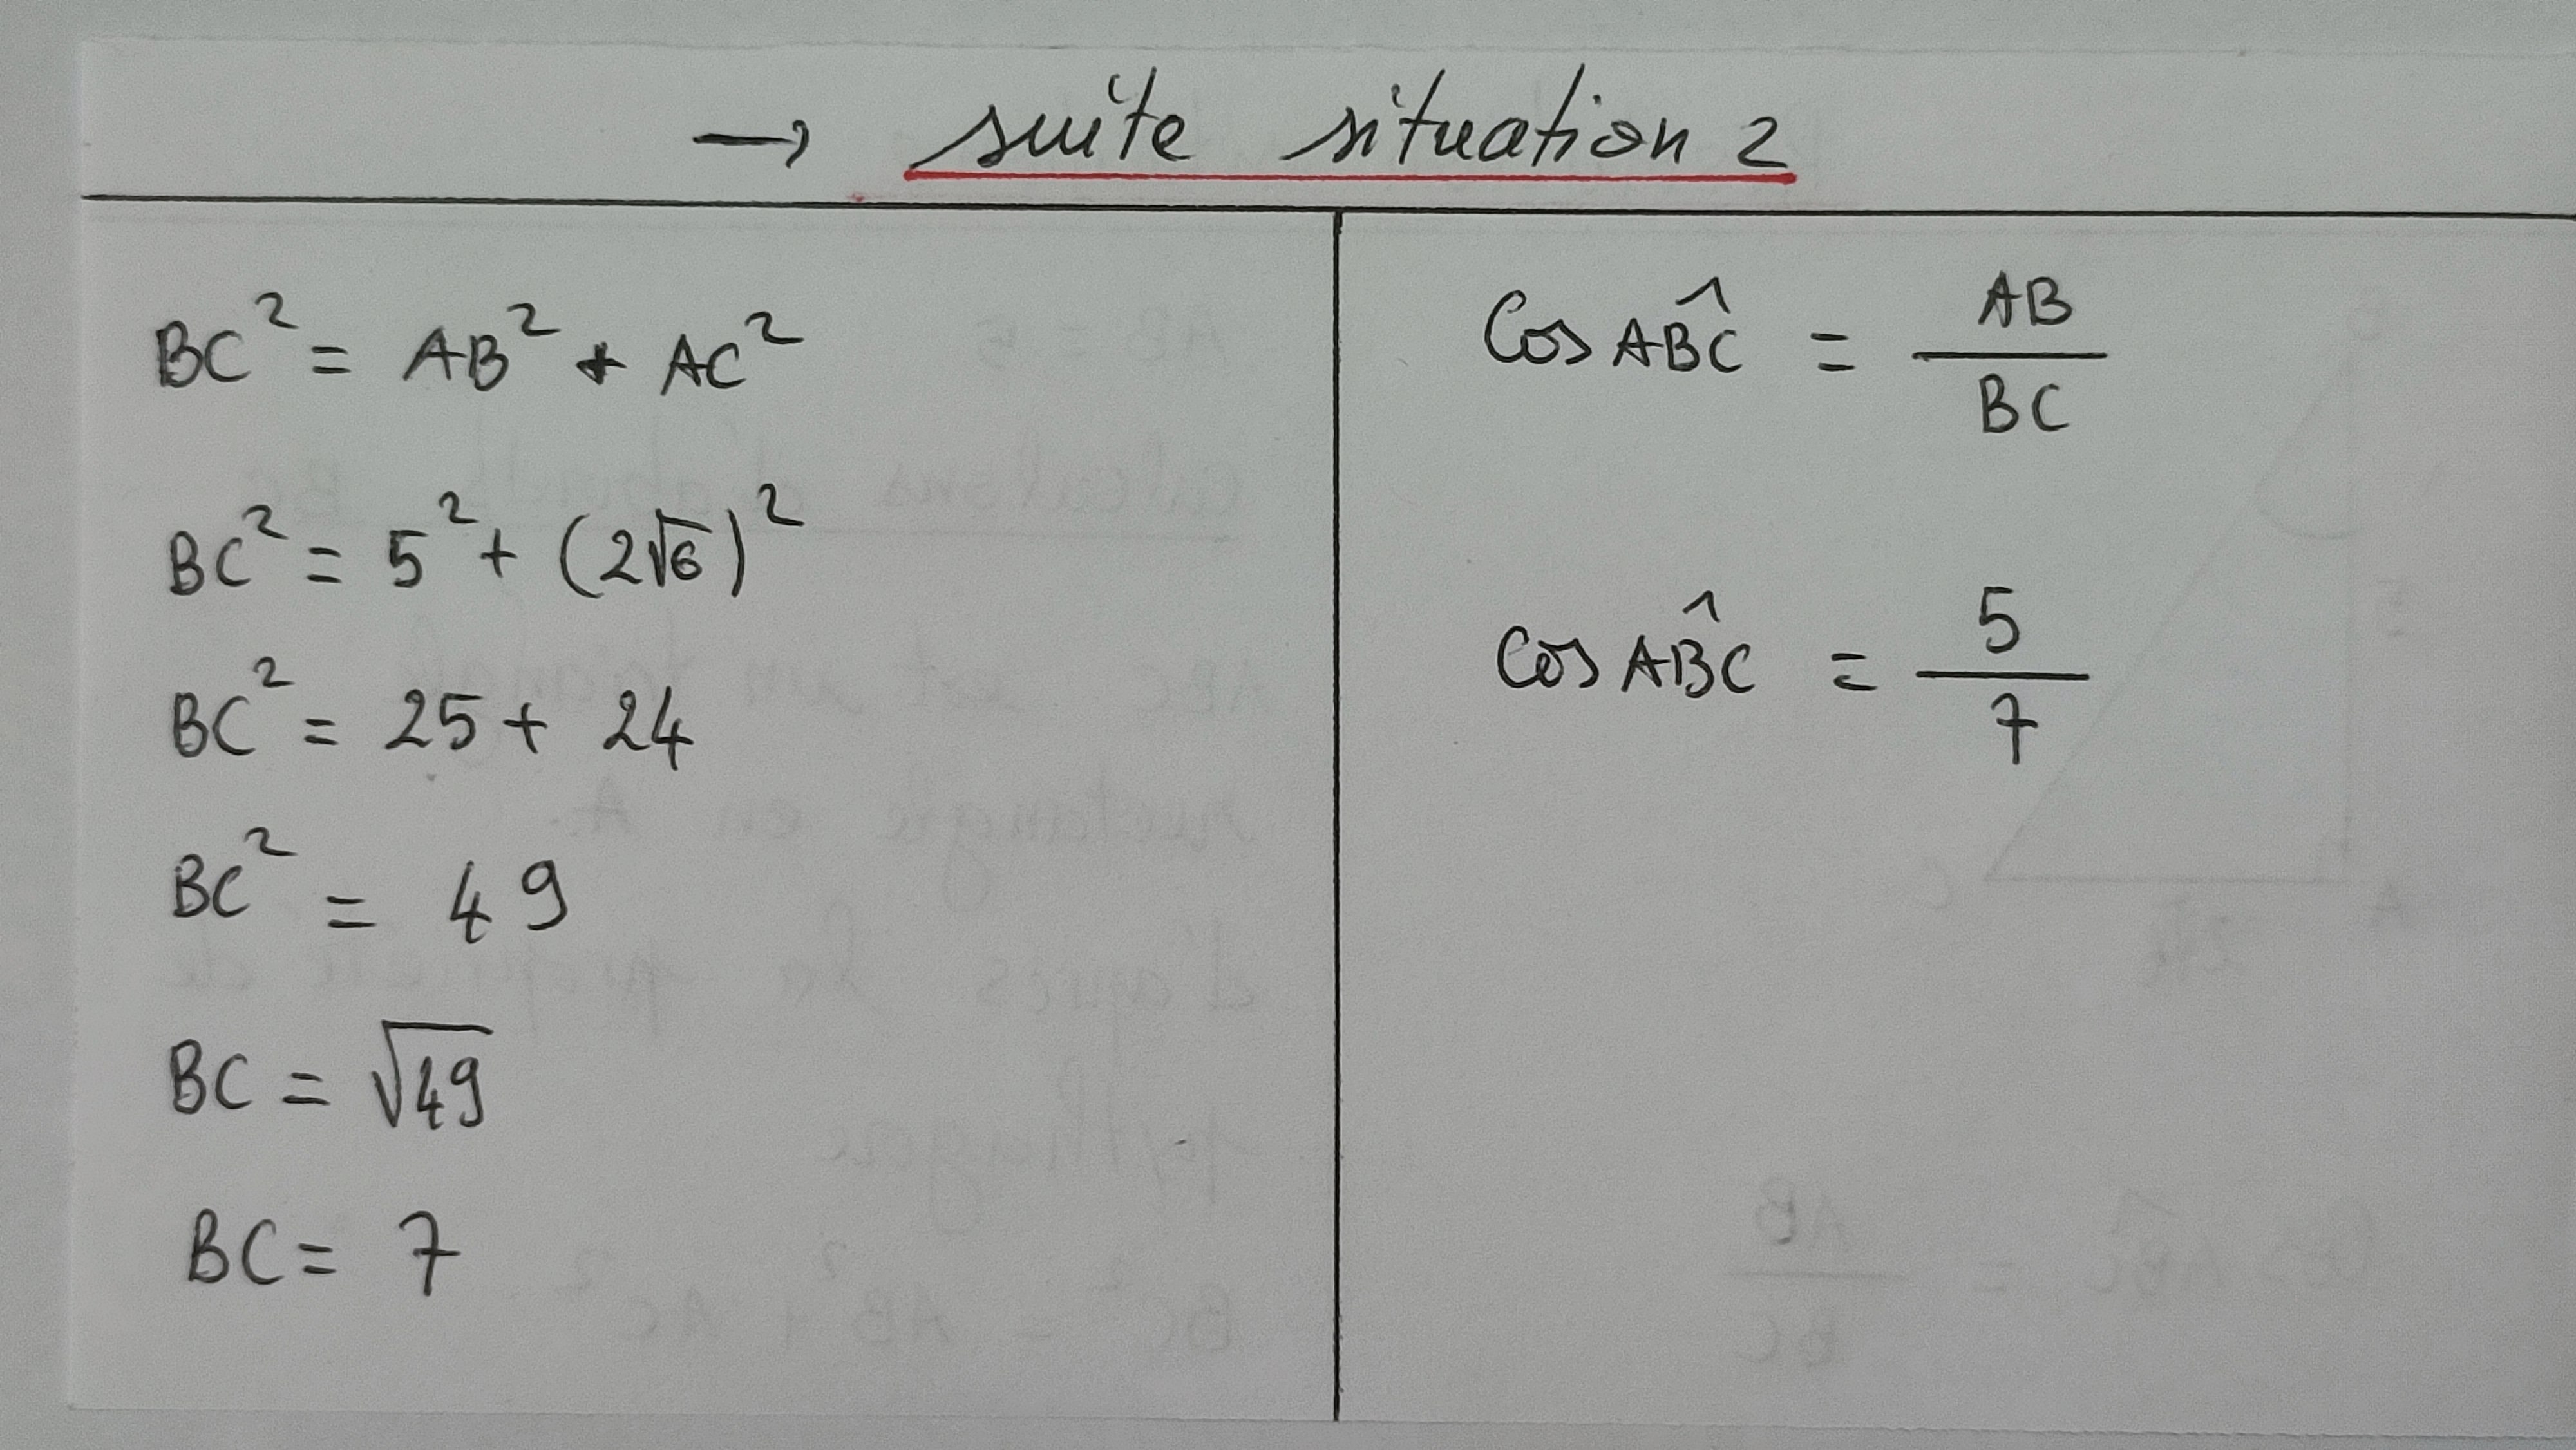 → suite situation 2
BC² = AB² + AC²
BC² = 5² + (2√6)²
BC² = 25 + 24
BC² = 49
BC = √49
BC = 7
Cos AB̂C = AB/BC
Cos AB̂C = 5/7